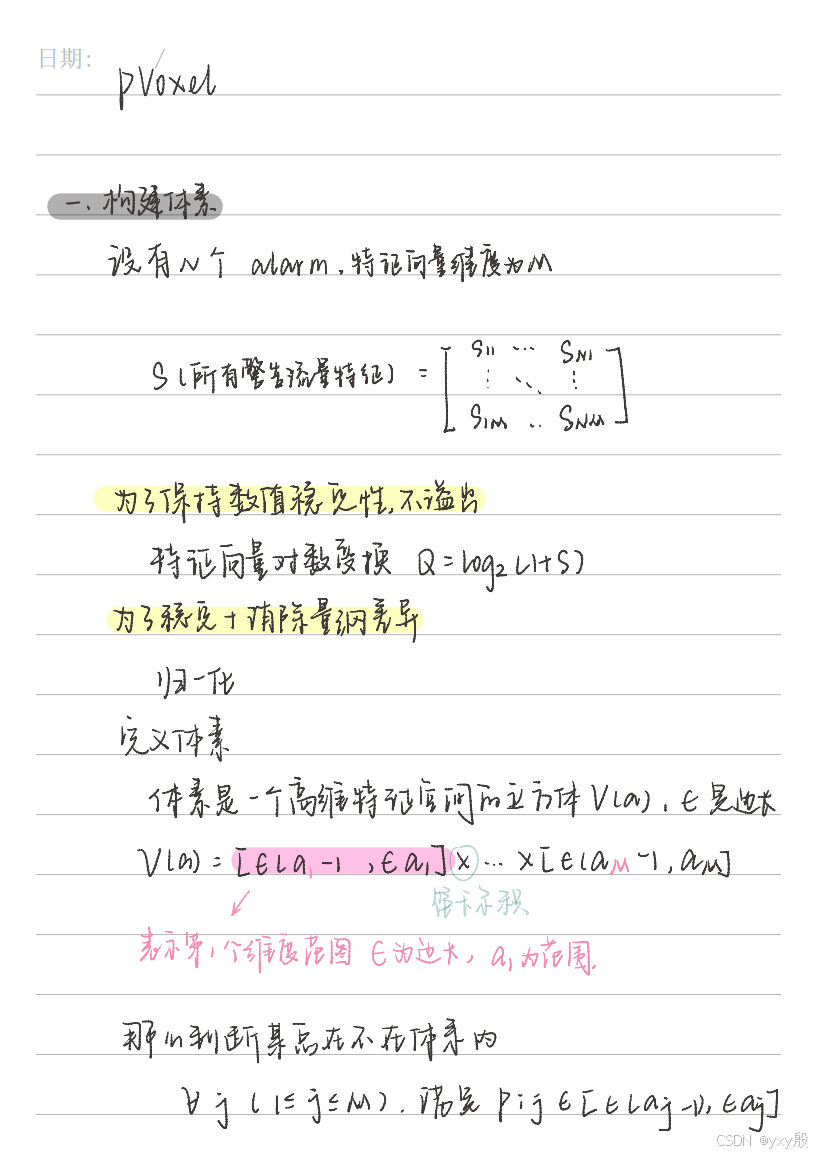 日期: /
pVoxel
一. 构建体素
设有N个 alarm, 特征向量维度为M
S(所有警告流量特征) = [ S11 ... SN1
⋮ ⋱ ⋮
S1M .. SNM ]
为了保持数值稳定性, 不溢出
特征向量对数变换 Q=log2(1+S)
为了稳定+消除量纲差异
归一化
定义体素
体素是一个高维特征空间的立方体V(a), ϵ是边长
V(a) = [ϵ(a1-1, ϵa1] × ... × [ϵ(aM-1, aM]
笛卡尔积
表示第1个维度范围 ϵ为边长, a1为范围.
那么判断某点在不在体素内
∀j (1≤j≤M). 满足 pij ∈ [ϵ(aj-1), ϵaj]
CSDN @yxy殷